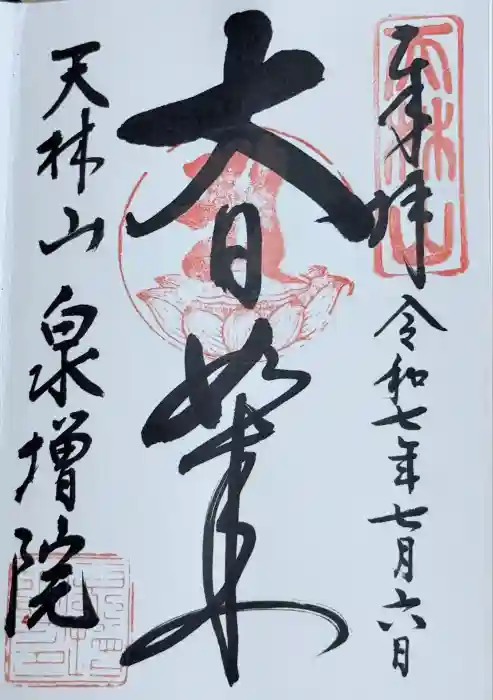 奉拝
令和七年七月六日
大日如来
天林山
泉増院
天林山